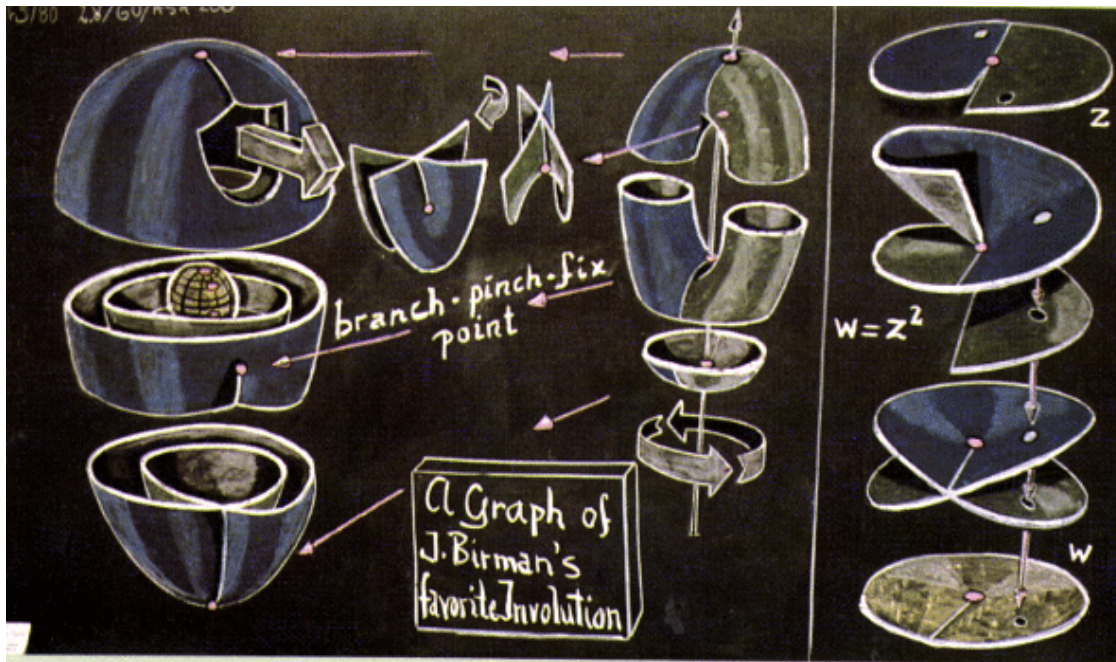 branch·pinch·fix
point
A Graph of
J. Birman's
favorite Involution
z
w = z²
w